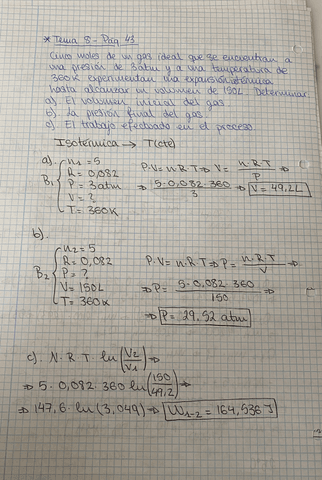 * Tema 8 - Pag 43
Cinco moles de un gas ideal que se encuentran a
una presión de 3 atm y a una temperatura de
360K experimentan una expansión isotérmica
hasta alcanzar un volumen de 150L. Determinar
a). El volumen inicial del gas
b). La presión final del gas.
c). El trabajo efectuado en el proceso
Isotérmica → T(cte)
a).
B₁ { n₁ = 5
R = 0,082
P = 3 atm
V = ?
T = 360K
P·V = n·R·T ⇒ V = n·R·T / P ⇒
⇒ 5·0,082·360 / 3 ⇒ V = 49,2L
b).
B₂ { n₂ = 5
R = 0,082
P = ?
V = 150L
T = 360K
P·V = n·R·T ⇒ P = n·R·T / V ⇒
⇒ P = 5·0,082·360 / 150 ⇒
⇒ P = 29,52 atm
c). N·R·T·ln(V₂/V₁) ⇒
⇒ 5·0,082·360 ln(150/49,2) ⇒
⇒ 147,6·ln(3,049) ⇒ W₁₋₂ = 164,536 J